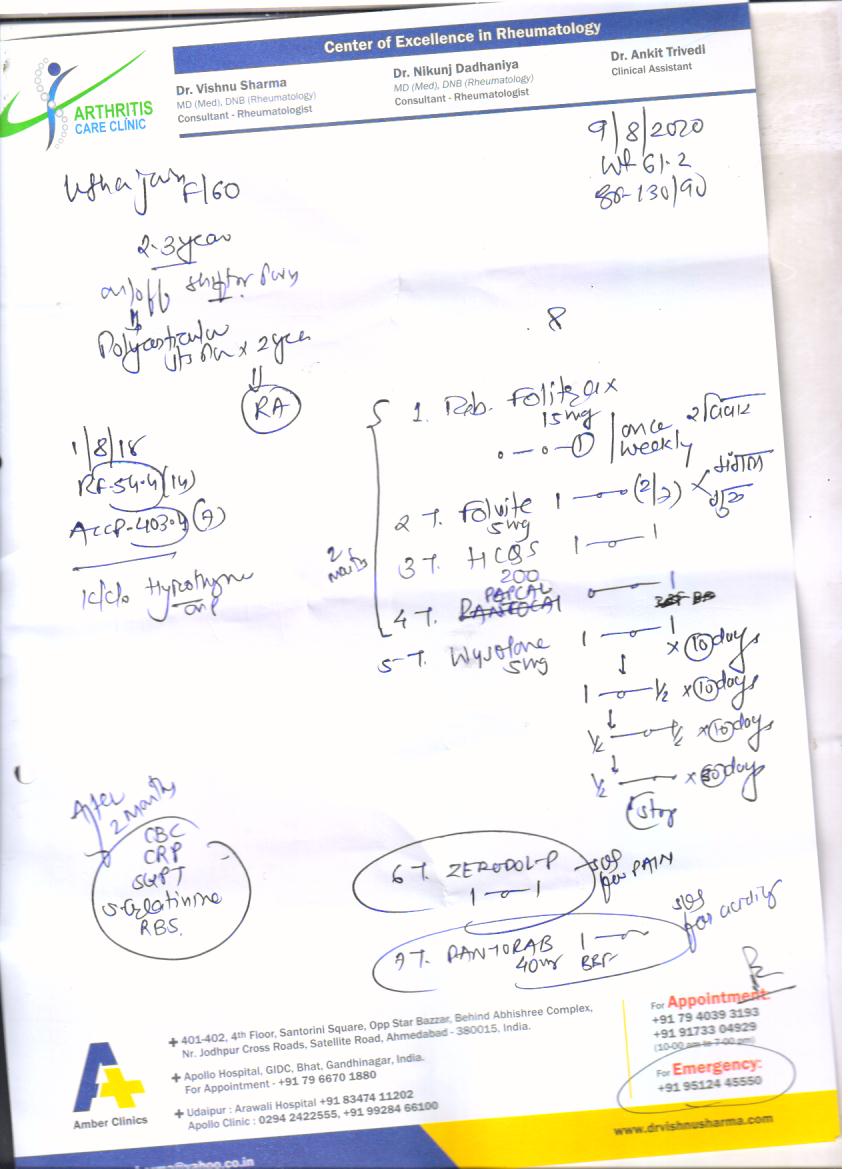 Center of Excellence in Rheumatology
ARTHRITIS
CARE CLINIC
Dr. Vishnu Sharma
MD (Med), DNB (Rheumatology)
Consultant - Rheumatologist
Dr. Nikunj Dadhaniya
MD (Med), DNB (Rheumatology)
Consultant - Rheumatologist
Dr. Ankit Trivedi
Clinical Assistant
9/8/2020
Wt 61.2
130/90
Usha Jain F/60
2-3 year
on/off
Polyarticular
x 2 year
RA
1/8/18
RF-54.4 (14)
ACCP-403.4 (7)
K/c/o
8
1. Tab. Folitrax
15mg
0-0-1 once
weekly रविवार
2 T. Folvite 1-0-0 (2/7) मंगल
5mg गुरु
3 T. HCQS 1-0-1
200
PAPCAL
4 T. 0-1
2
months
5 T. Wysolone 1-0-1 x 10 days
5mg
1-0-1/2 x 10 days
1/2-0-1/2 x 10 days
1/2 x days
Stop
After
2 Months
CBC
CRP
SGPT
S. Creatinine
RBS.
6 T. ZERODOL-P SOS
for PAIN
1-0-1
7 T. PANTORAB 1-0 SOS
for acidity
40mg BBF
For Appointment:
+91 79 4039 3193
+91 91733 04929
(10-00 am to 7-00 pm)
For Emergency:
+91 95124 45550
Amber Clinics
401-402, 4th Floor, Santorini Square, Opp Star Bazzar, Behind Abhishree Complex,
Nr. Jodhpur Cross Roads, Satellite Road, Ahmedabad - 380015, India.
Apollo Hospital, GIDC, Bhat, Gandhinagar, India.
For Appointment - +91 79 6670 1880
Udaipur : Arawali Hospital +91 83474 11202
Apollo Clinic : 0294 2422555, +91 99284 66100
www.drvishnusharma.com
@yahoo.co.in